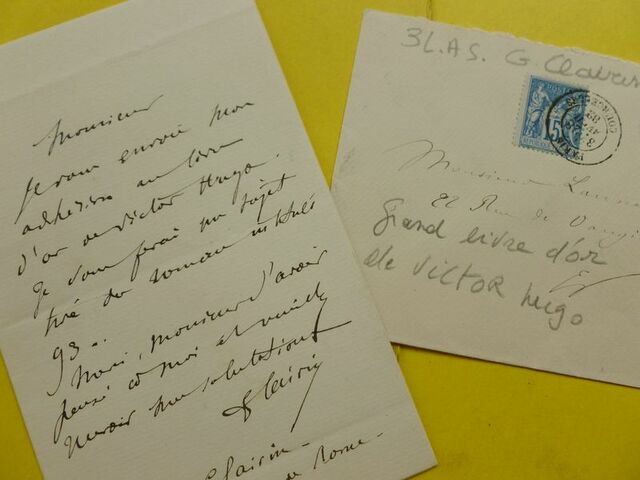 Monsieur
Je vous envoie mon
adhésion au livre
d'or de Victor Hugo.
Je vous ferai un sujet
tiré du roman intitulé
93.
Merci, Monsieur d'avoir
pensé à moi et veuillez
recevoir mes salutations
Clairin
Clairin
de Rome
3 L.A.S. G. Clairin
Monsieur
Rue de
Grand livre d'or
de VICTOR Hugo